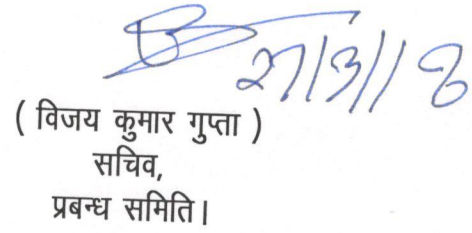 27/3/18
( विजय कुमार गुप्ता )
सचिव,
प्रबन्ध समिति।